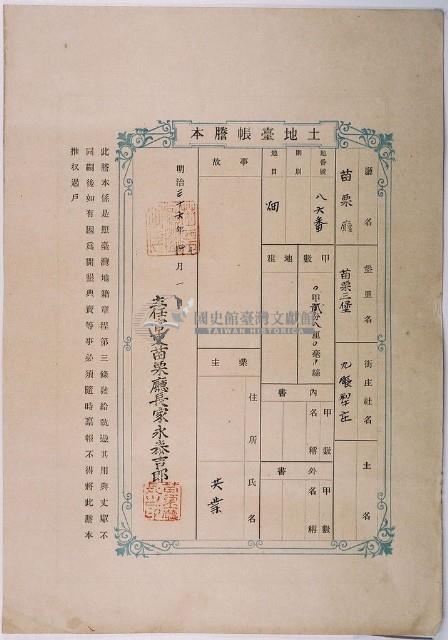 本謄帳臺地土
廳名
苗栗廳
堡里名
苗栗三堡
街庄社名
土名
地番號
八六番
則別
地目
畑
甲數
〇甲貳分八厘〇毫〇絲
地租
內書
名稱
甲數
外書
名稱
甲數
事故
業主
住所
氏名
共業
明治三十六年四月一日
苗栗廳長家永泰吉郎
此謄本係是照臺灣地籍章程第三條發給
同嗣後如有因為開墾典賣等事必須隨時稟報不得將此謄本
推收過戶
國史館臺灣文獻館
TAIWAN HISTORICA